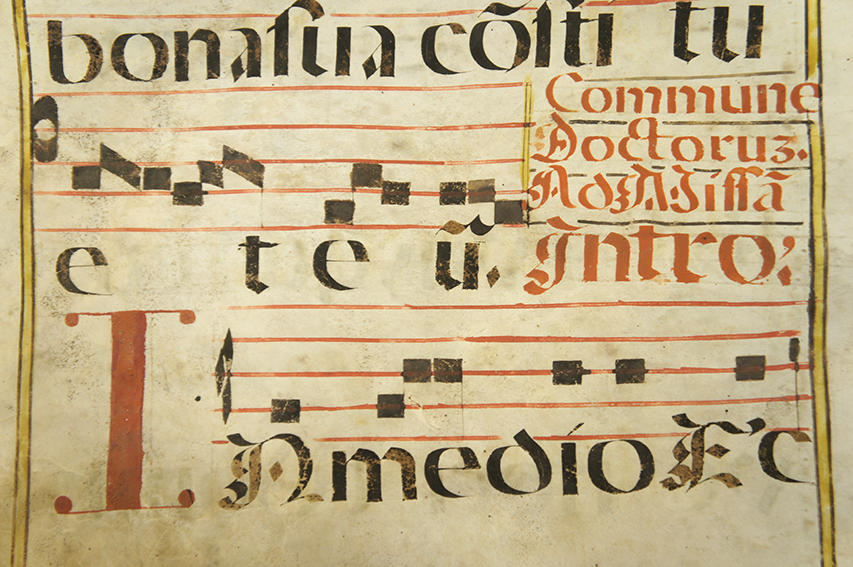 bonasua cõsti tu
Commune
Doctoruz.
Ad Missã
e te ũ. Intro:
IN medio Ec